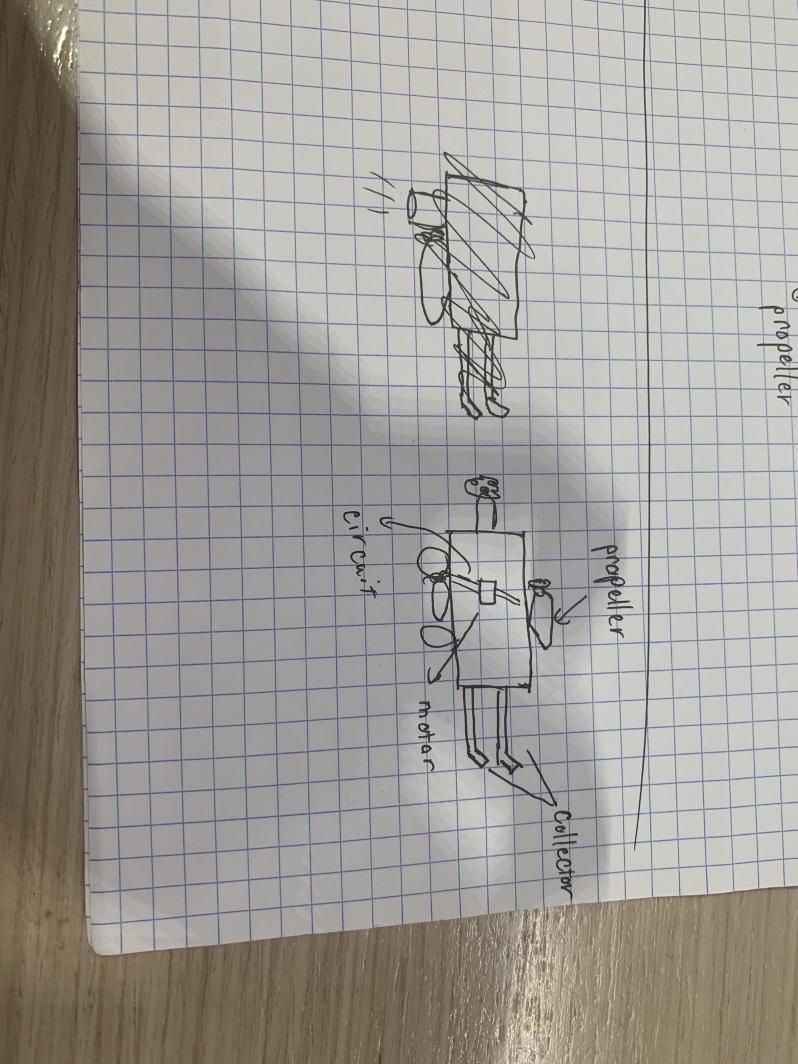 propeller
propeller
collector
motor
circuit